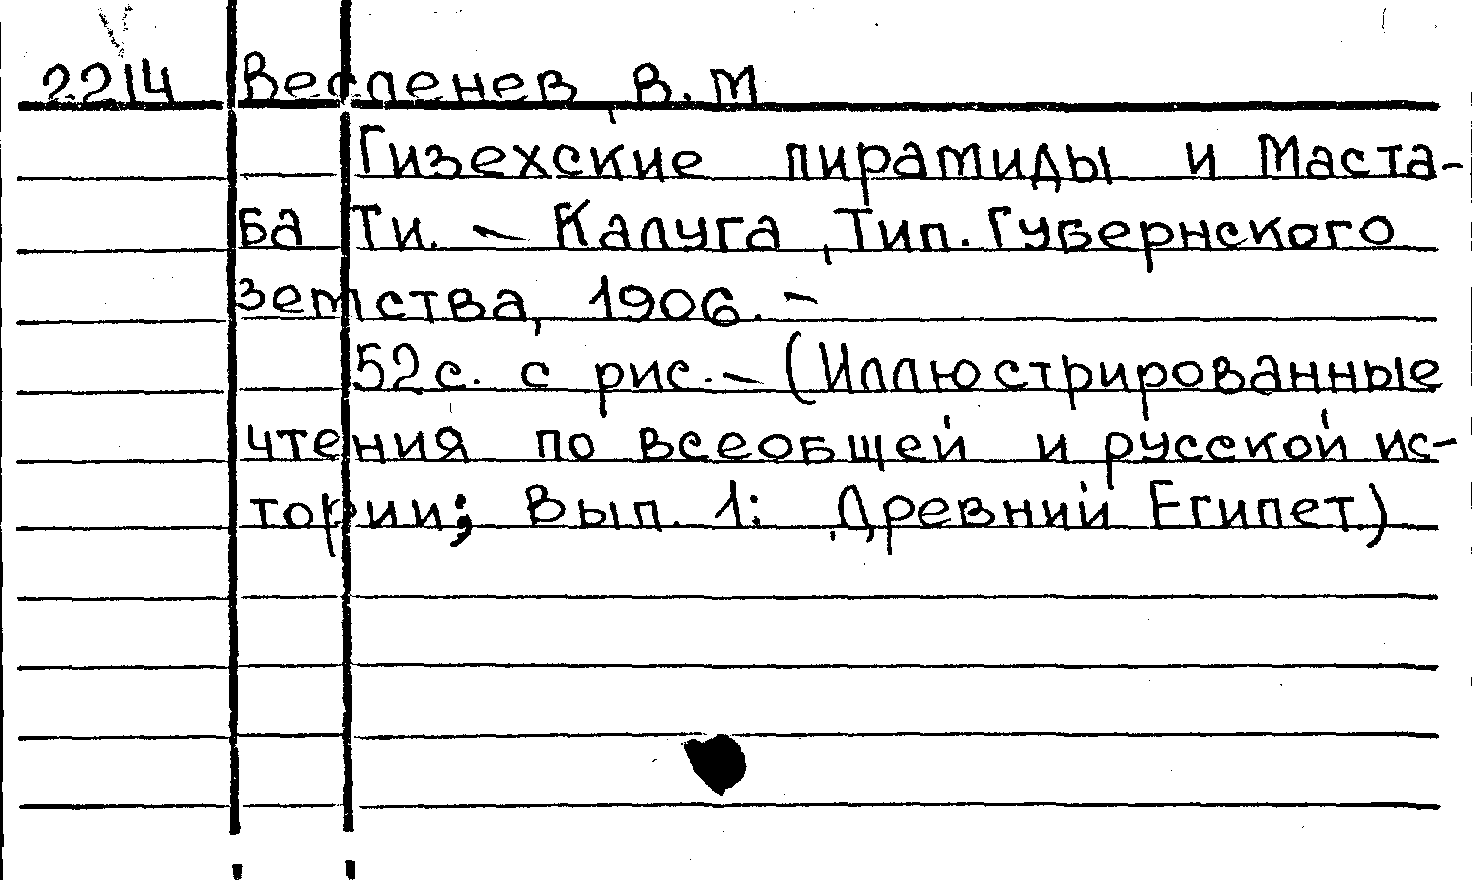 2214 Весленев, В.М
Гизехские пирамиды и Маста-
ба Ти. - Калуга, Тип. Губернского
земства, 1906. -
52с. с рис. - (Иллюстрированные
чтения по всеобщей и русской ис-
тории; Вып. 1: Древний Египет.)